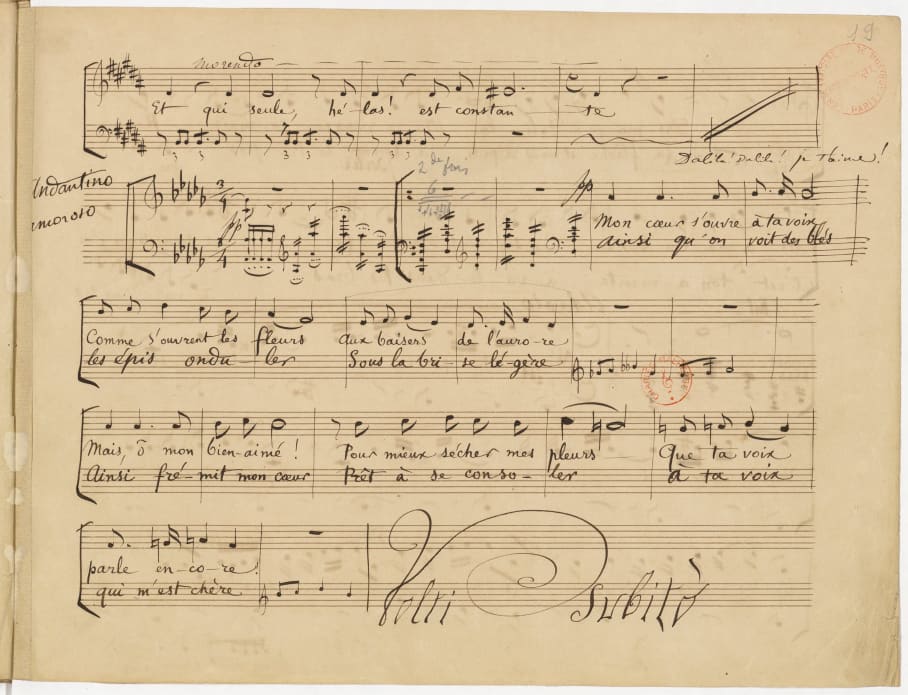 19
morendo
Et qui seule, hé-las! est constan - te
3 3 3 3 3
Dalila! Dalila! je t'aime!
Andantino
amoroso
2de fois
pp
pp
Mon cœur s'ouvre à ta voix
Ainsi qu'on voit des blés
Comme s'ouvrent les fleurs aux baisers de l'auro-re
les épis ondu-ler Sous la bri-se lé-gère
Mais, ô mon bien-aimé! Pour mieux sécher mes pleurs Que ta voix
Ainsi fré-mit mon cœur Prêt à se conso-ler à ta voix
parle en-co-re!
qui m'est chère
Volti Subitò